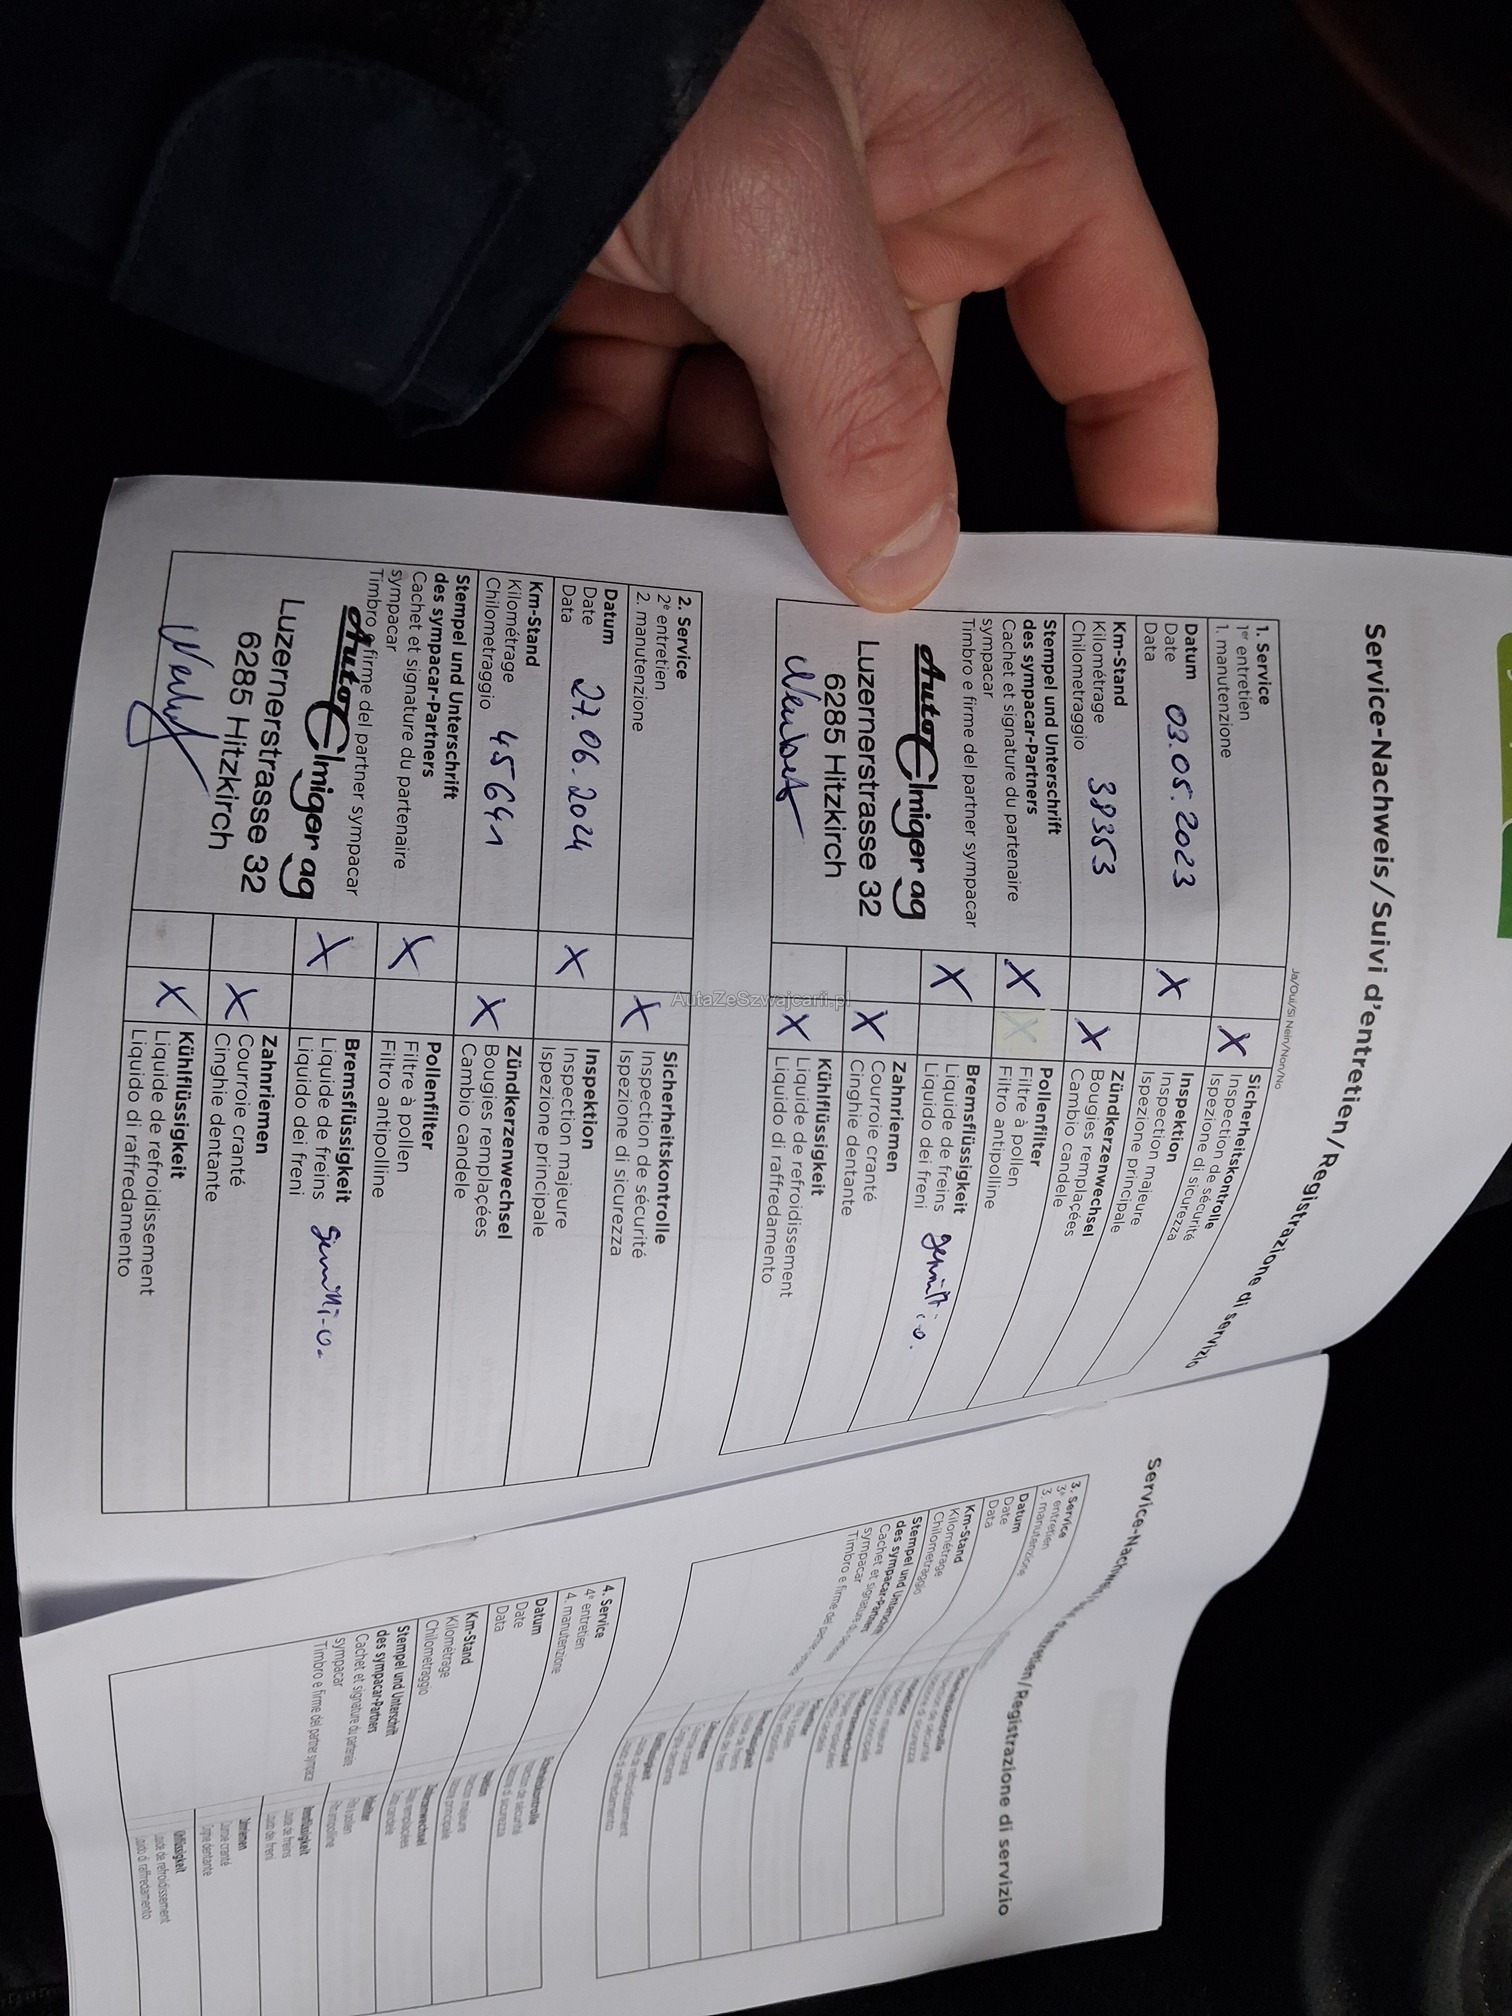 Service-Nachweis/Suivi d'entretien/Registrazione di servizio
Ja/Oui/Si Nein/Non/No
1. Service
1er entretien
1. manutenzione
Datum
Date 03.05.2023
Data
Km-Stand
Kilométrage 38353
Chilometraggio
Stempel und Unterschrift
des sympacar-Partners
Cachet et signature du partenaire
sympacar
Timbro e firme del partner sympacar
Auto Elmiger ag
Luzernerstrasse 32
6285 Hitzkirch
X Sicherheitskontrolle
Inspection de sécurité
Ispezione di sicurezza
X Inspektion
Inspection majeure
Ispezione principale
X Zündkerzenwechsel
Bougies remplaçées
Cambio candele
X X Pollenfilter
Filtre à pollen
Filtro antipolline
X Bremsflüssigkeit
Liquide de freins
Liquido dei freni
X Zahnriemen
Courroie cranté
Cinghie dentante
X Kühlflüssigkeit
Liquide de refroidissement
Liquido di raffredamento
2. Service
2e entretien
2. manutenzione
Datum
Date 27.06.2024
Data
Km-Stand
Kilométrage 45641
Chilometraggio
Stempel und Unterschrift
des sympacar-Partners
Cachet et signature du partenaire
sympacar
Timbro e firme del partner sympacar
Auto Elmiger ag
Luzernerstrasse 32
6285 Hitzkirch
X Sicherheitskontrolle
Inspection de sécurité
Ispezione di sicurezza
X Inspektion
Inspection majeure
Ispezione principale
X Zündkerzenwechsel
Bougies remplaçées
Cambio candele
X Pollenfilter
Filtre à pollen
Filtro antipolline
X Bremsflüssigkeit
Liquide de freins
Liquido dei freni
X Zahnriemen
Courroie cranté
Cinghie dentante
X Kühlflüssigkeit
Liquide de refroidissement
Liquido di raffredamento
AutaZeSzwajcarii.pl
Service-Nachweis entretien/Registrazione di servizio
3. Service
3e entretien
3. manutenzione
Datum
Date
Data
Km-Stand
Kilométrage
Chilometraggio
Stempel und Unterschrift
des sympacar-Partners
Cachet et signature du
sympacar
Timbro e firme del partner
4. Service
4e entretien
4. manutenzione
Datum
Date
Data
Km-Stand
Kilométrage
Chilometraggio
Stempel und Unterschrift
des sympacar-Partners
Cachet et signature du partenaire
sympacar
Timbro e firme del partner